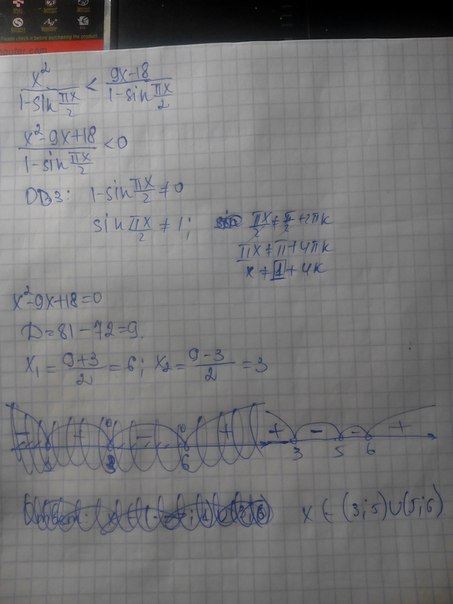 x²/(1-sin πx/2) < (9x-18)/(1-sin πx/2)
(x²-9x+18)/(1-sin πx/2) < 0
ОВЗ: 1-sin πx/2 ≠ 0
sin πx/2 ≠ 1; πx/2 ≠ π/2 + 2πk
πx ≠ π + 4πk
x ≠ 1 + 4k
x²-9x+18=0
D=81-72=9.
x₁ = (9+3)/2 = 6; x₂ = (9-3)/2 = 3
+ 3 - 5 - 6 +
x ∈ (3;5)∪(5;6)